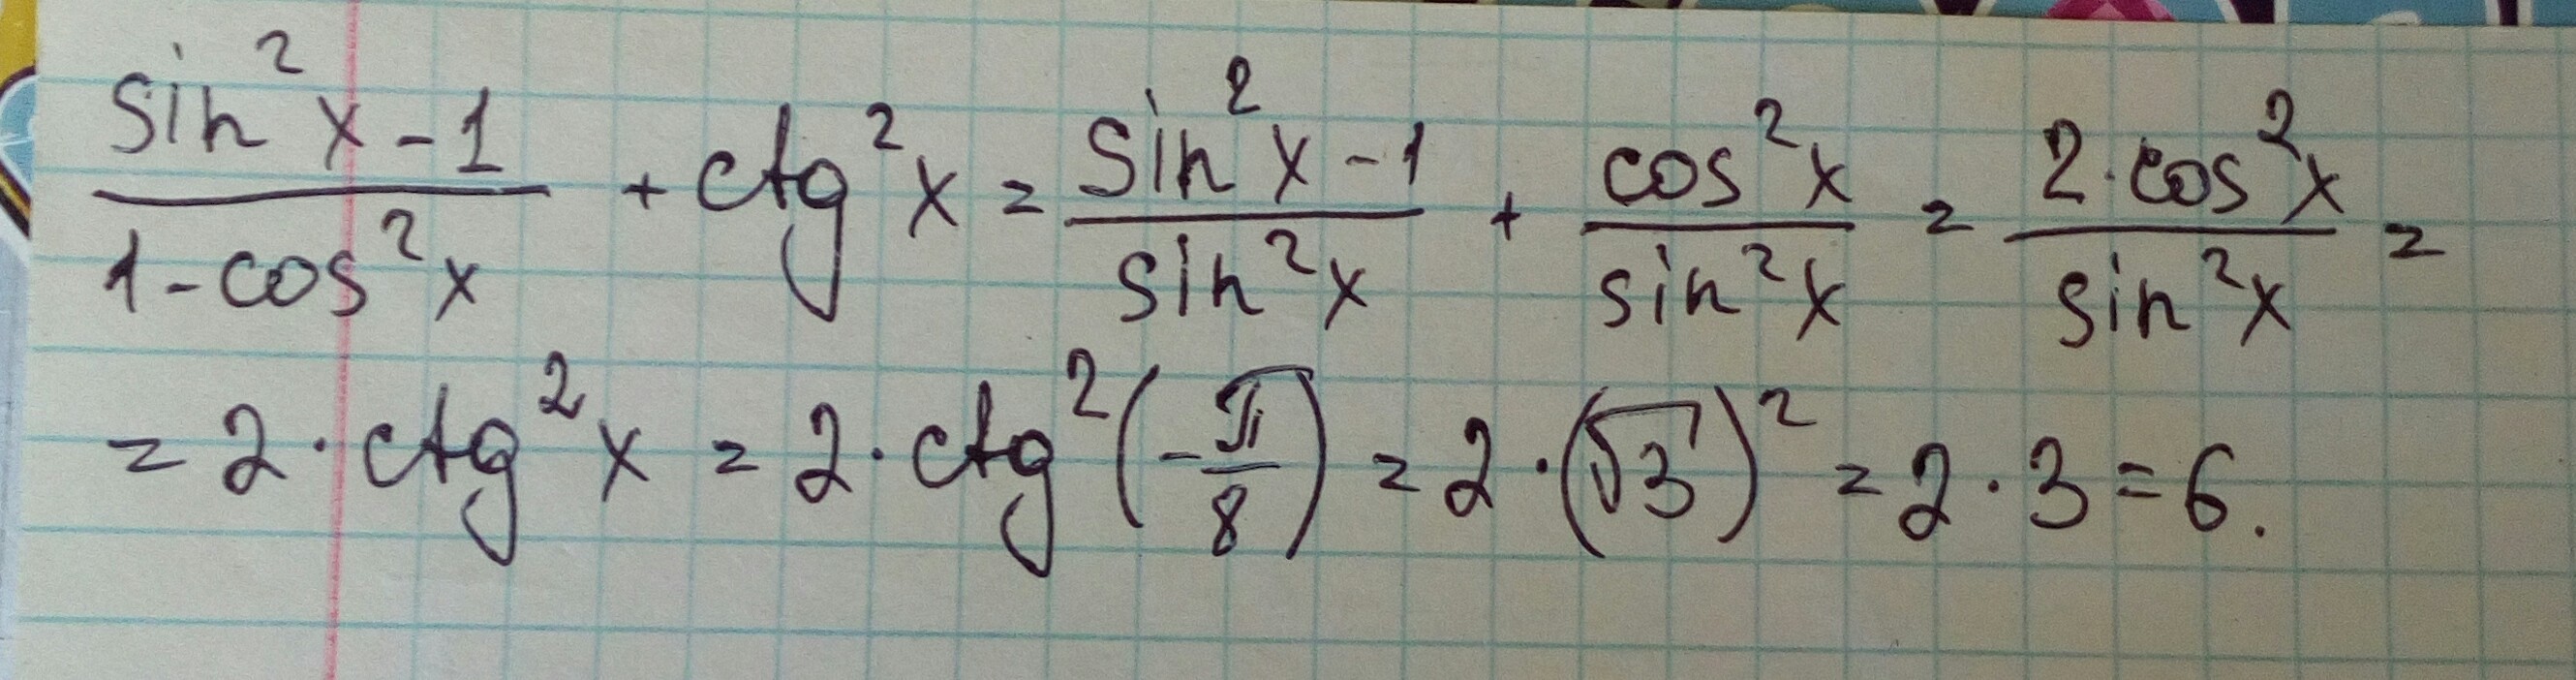 (sin²x-1)/(1-cos²x) + ctg²x = (sin²x-1)/(sin²x) + (cos²x)/(sin²x) = (2·cos²x)/(sin²x) =
= 2·ctg²x = 2·ctg²(-π/8) = 2·(√3)² = 2·3=6.